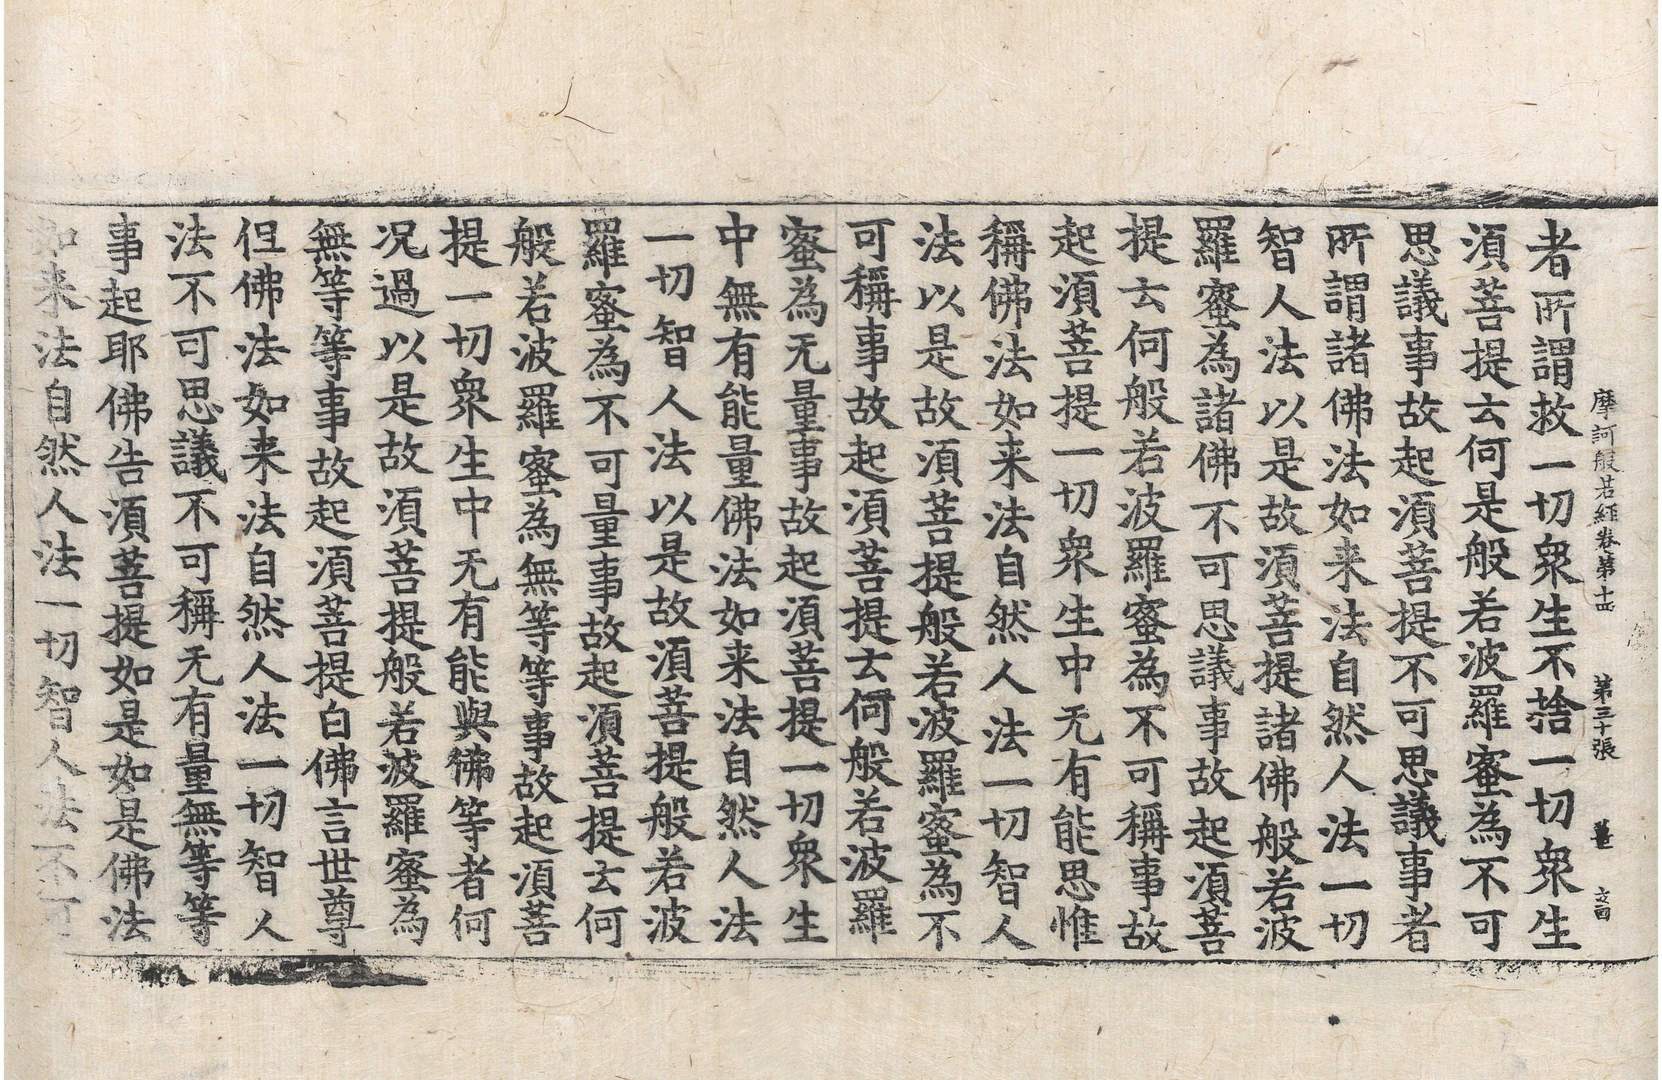 摩訶般若經卷第十四 第三十張 薑 文昌
者所謂救一切衆生不捨一切衆生
須菩提云何是般若波羅蜜為不可
思議事故起須菩提不可思議事者
所謂諸佛法如来法自然人法一切
智人法以是故須菩提諸佛般若波
羅蜜為諸佛不可思議事故起須菩
提云何般若波羅蜜為不可稱事故
起須菩提一切衆生中无有能思惟
稱佛法如来法自然人法一切智人
法以是故須菩提般若波羅蜜為不
可稱事故起須菩提云何般若波羅
蜜為无量事故起須菩提一切衆生
中無有能量佛法如来法自然人法
一切智人法以是故須菩提般若波
羅蜜為不可量事故起須菩提云何
般若波羅蜜為無等等事故起須菩
提一切衆生中无有能與佛等者何
况過以是故須菩提般若波羅蜜為
無等等事故起須菩提白佛言世尊
但佛法如来法自然人法一切智人
法不可思議不可稱无有量無等等
事起耶佛告須菩提如是如是佛法
如来法自然人法一切智人法不可